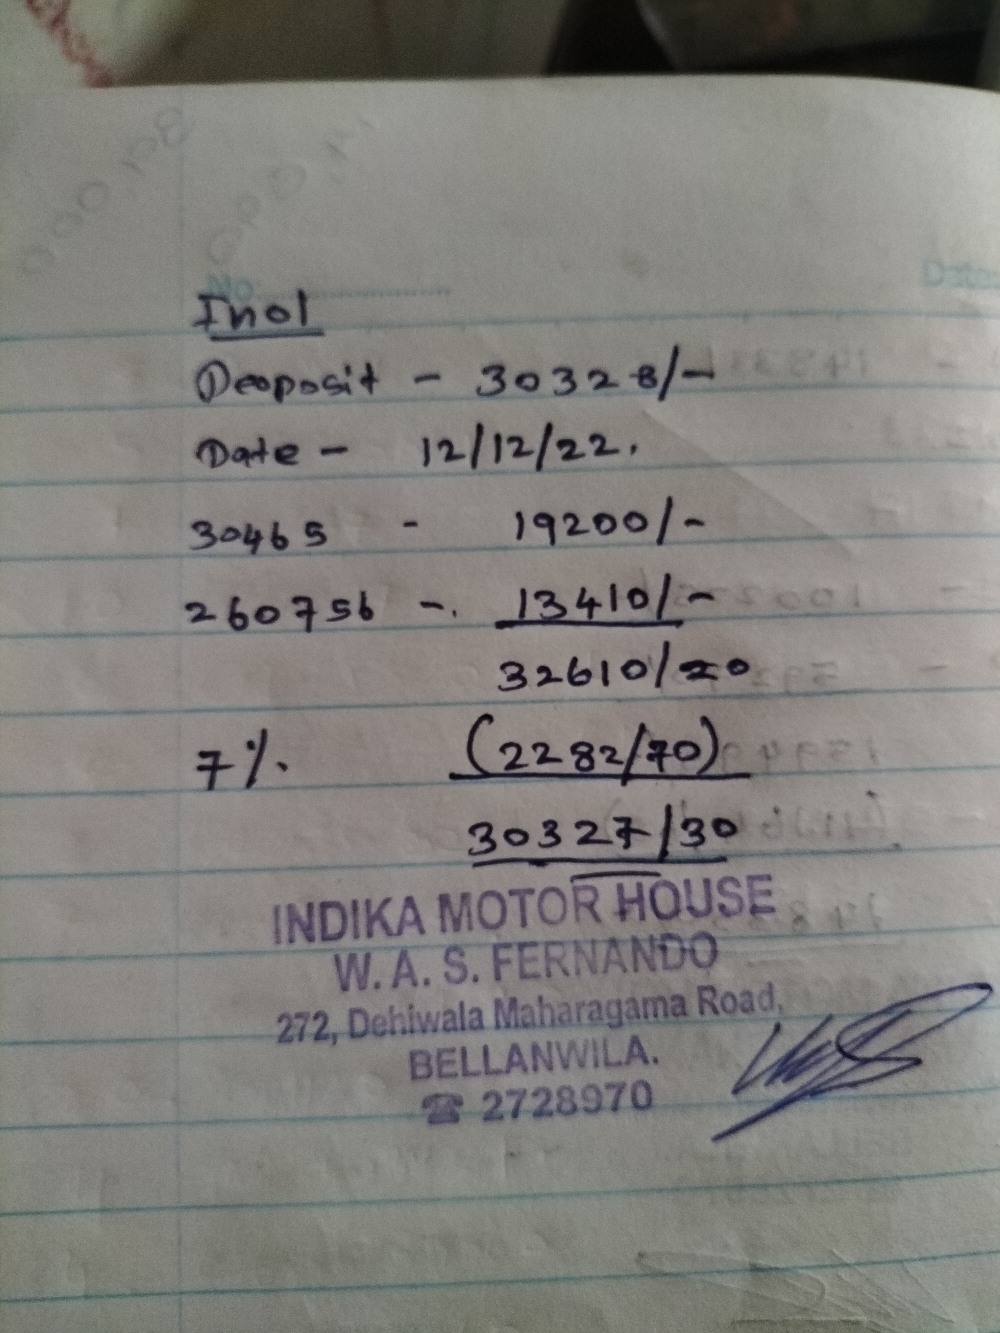 No:
Inol
Deoposit - 30328/-
Date - 12/12/22.
30465 - 19200/-
260756 - 13410/-
32610/20
7%. (2282/70)
30327/30
INDIKA MOTOR HOUSE
W. A. S. FERNANDO
272, Dehiwala Maharagama Road,
BELLANWILA.
☎ 2728970